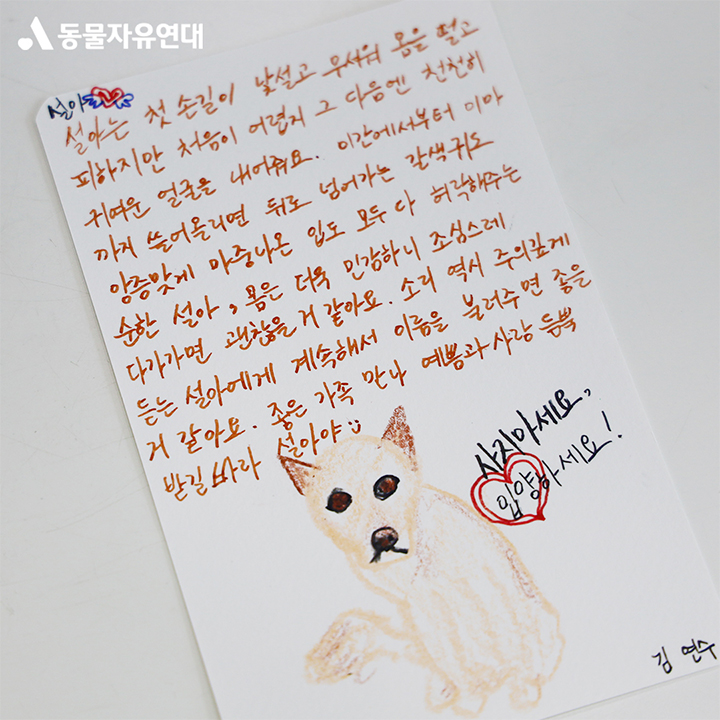 동물자유연대
설아
설아는 첫 손길이 낯설고 무서워 몸을 떨고
피하지만 처음이 어렵지 그 다음엔 천천히
귀여운 얼굴을 내어줘요. 미간에서부터 이마
까지 쓸어올리면 뒤로 넘어가는 갈색 귀도
앙증맞게 마중나온 입도 모두 다 허락해주는
순한 설아, 몸은 더욱 민감하니 조심스레
다가가면 괜찮을 거 같아요. 소리 역시 주의깊게
듣는 설아에게 계속해서 이름을 불러주면 좋을
거 같아요. 좋은 가족 만나 예쁨과 사랑 듬뿍
받길 바라 설아야
사지마세요,
입양하세요!
김연수